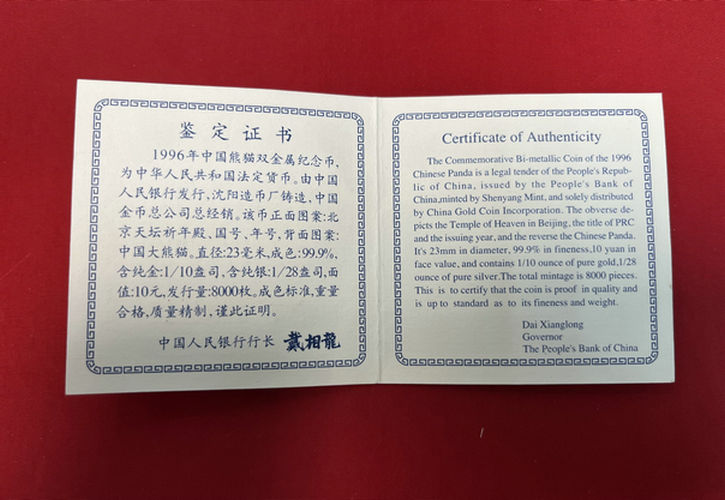 鉴定证书
1996年中国熊猫双金属纪念币,
为中华人民共和国法定货币。由中国
人民银行发行,沈阳造币厂铸造,中国
金币总公司总经销。该币正面图案:北
京天坛祈年殿、国号、年号,背面图案:
中国大熊猫。直径:23毫米,成色:99.9%,
含纯金:1/10盎司,含纯银:1/28盎司,面
值:10元,发行量:8000枚。成色标准,重量
合格,质量精制,谨此证明。
中国人民银行行长 戴相龍
Certificate of Authenticity
The Commemorative Bi-metallic Coin of the 1996
Chinese Panda is a legal tender of the People's Repub-
lic of China, issued by the People's Bank of
China,minted by Shenyang Mint, and solely distributed
by China Gold Coin Incorporation. The obverse de-
picts the Temple of Heaven in Beijing, the title of PRC
and the issuing year, and the reverse the Chinese Panda.
It's 23mm in diameter, 99.9% in fineness,10 yuan in
face value, and contains 1/10 ounce of pure gold,1/28
ounce of pure silver.The total mintage is 8000 pieces.
This is to certify that the coin is proof in quality and
is up to standard as to its fineness and weight.
Dai Xianglong
Governor
The People's Bank of China